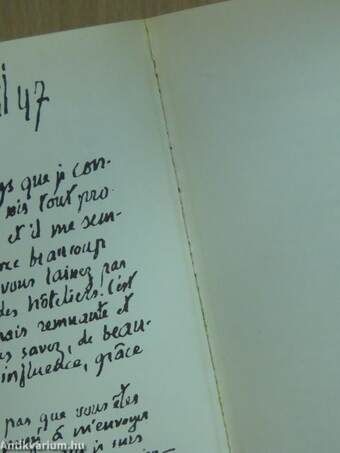 47
que je con-
tout pro
et il me sem-
beaucoup
vous laissez pas
des hôteliers. C'est
mais remuante et
savez, de beau-
influence, grâce
pas que vous êtes
à m'envoyer
je suis
Antikvarium.hu
antikvarium.hu